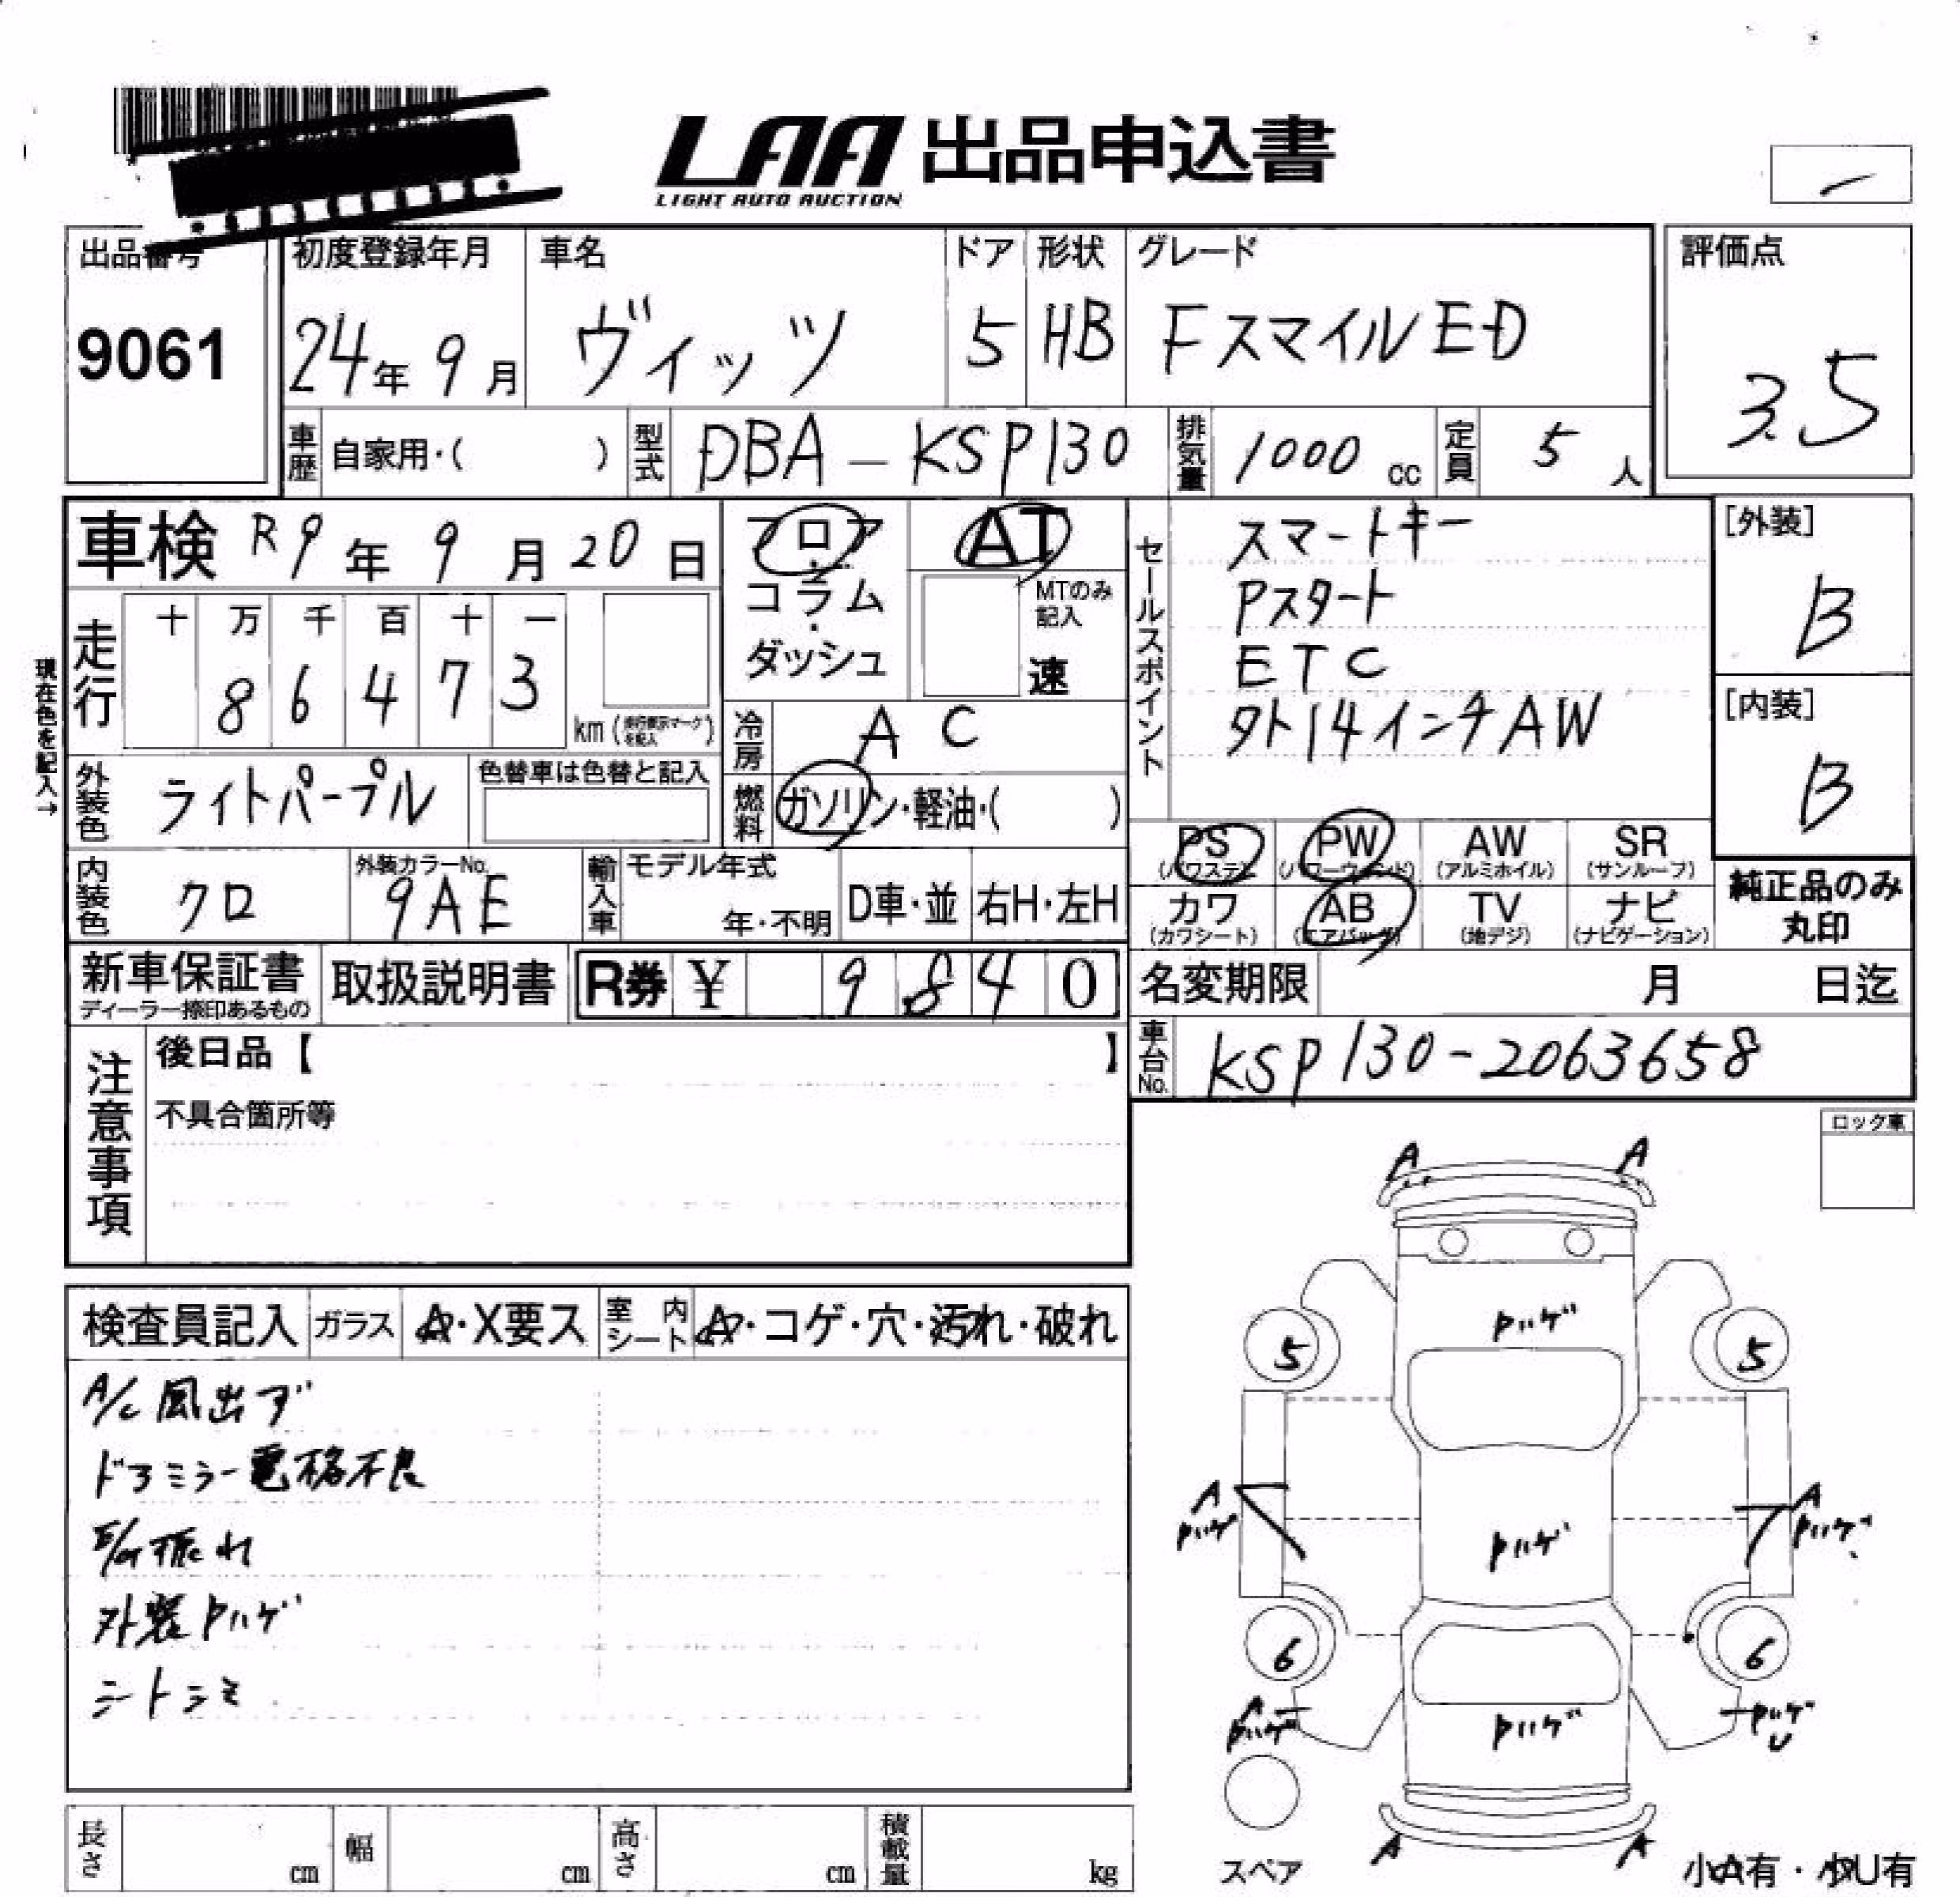 LAA 出品申込書
LIGHT AUTO AUCTION
出品番号 初度登録年月 車名 ドア 形状 グレード 評価点
9061 24年 9月 ヴィッツ 5 HB FスマイルED 3.5
車歴 自家用・( ) 型式 DBA-KSP130 排気量 1000 cc 定員 5 人
車検 R9年 9月 20日 フロア AT セールスポイント スマートキー [外装]
コラム MTのみ記入 Pスタート B
走行 十 万 千 百 十 一 ダッシュ 速 ETC
8 6 4 7 3 km 外14インチAW [内装]
現在色を記入→ 冷房 AC B
外装色 ライトパープル 色替車は色替と記入 燃料 ガソリン・軽油・( )
PS PW AW SR
(パワステ) (パワーウィンド) (アルミホイル) (サンルーフ)
内装色 クロ 外装カラーNo. 9AE 輸入車 モデル年式 年・不明 D車・並 右H・左H
カワ AB TV ナビ 純正品のみ
(カワシート) (エアバッグ) (地デジ) (ナビゲーション) 丸印
新車保証書 取扱説明書 R券 ¥ 9 8 4 0 名変期限 月 日迄
ディーラー捺印あるもの
車台No. KSP130-2063658
注意事項 後日品【 】
不具合箇所等
ロック車
A A
検査員記入 ガラス A・X要ス 室内シート A・コゲ・穴・汚れ・破れ
Pハゲ
5 5
A/C 風出ず
ドアミラー電格不良
A A
Pハゲ Pハゲ Pハゲ
E/G振れ
外装Pハゲ
6 6
シートシミ
A
Pハゲ Pハゲ Pハゲ
U
A A
長さ cm 幅 cm 高さ cm 積載量 kg
スペア 小A有・小U有